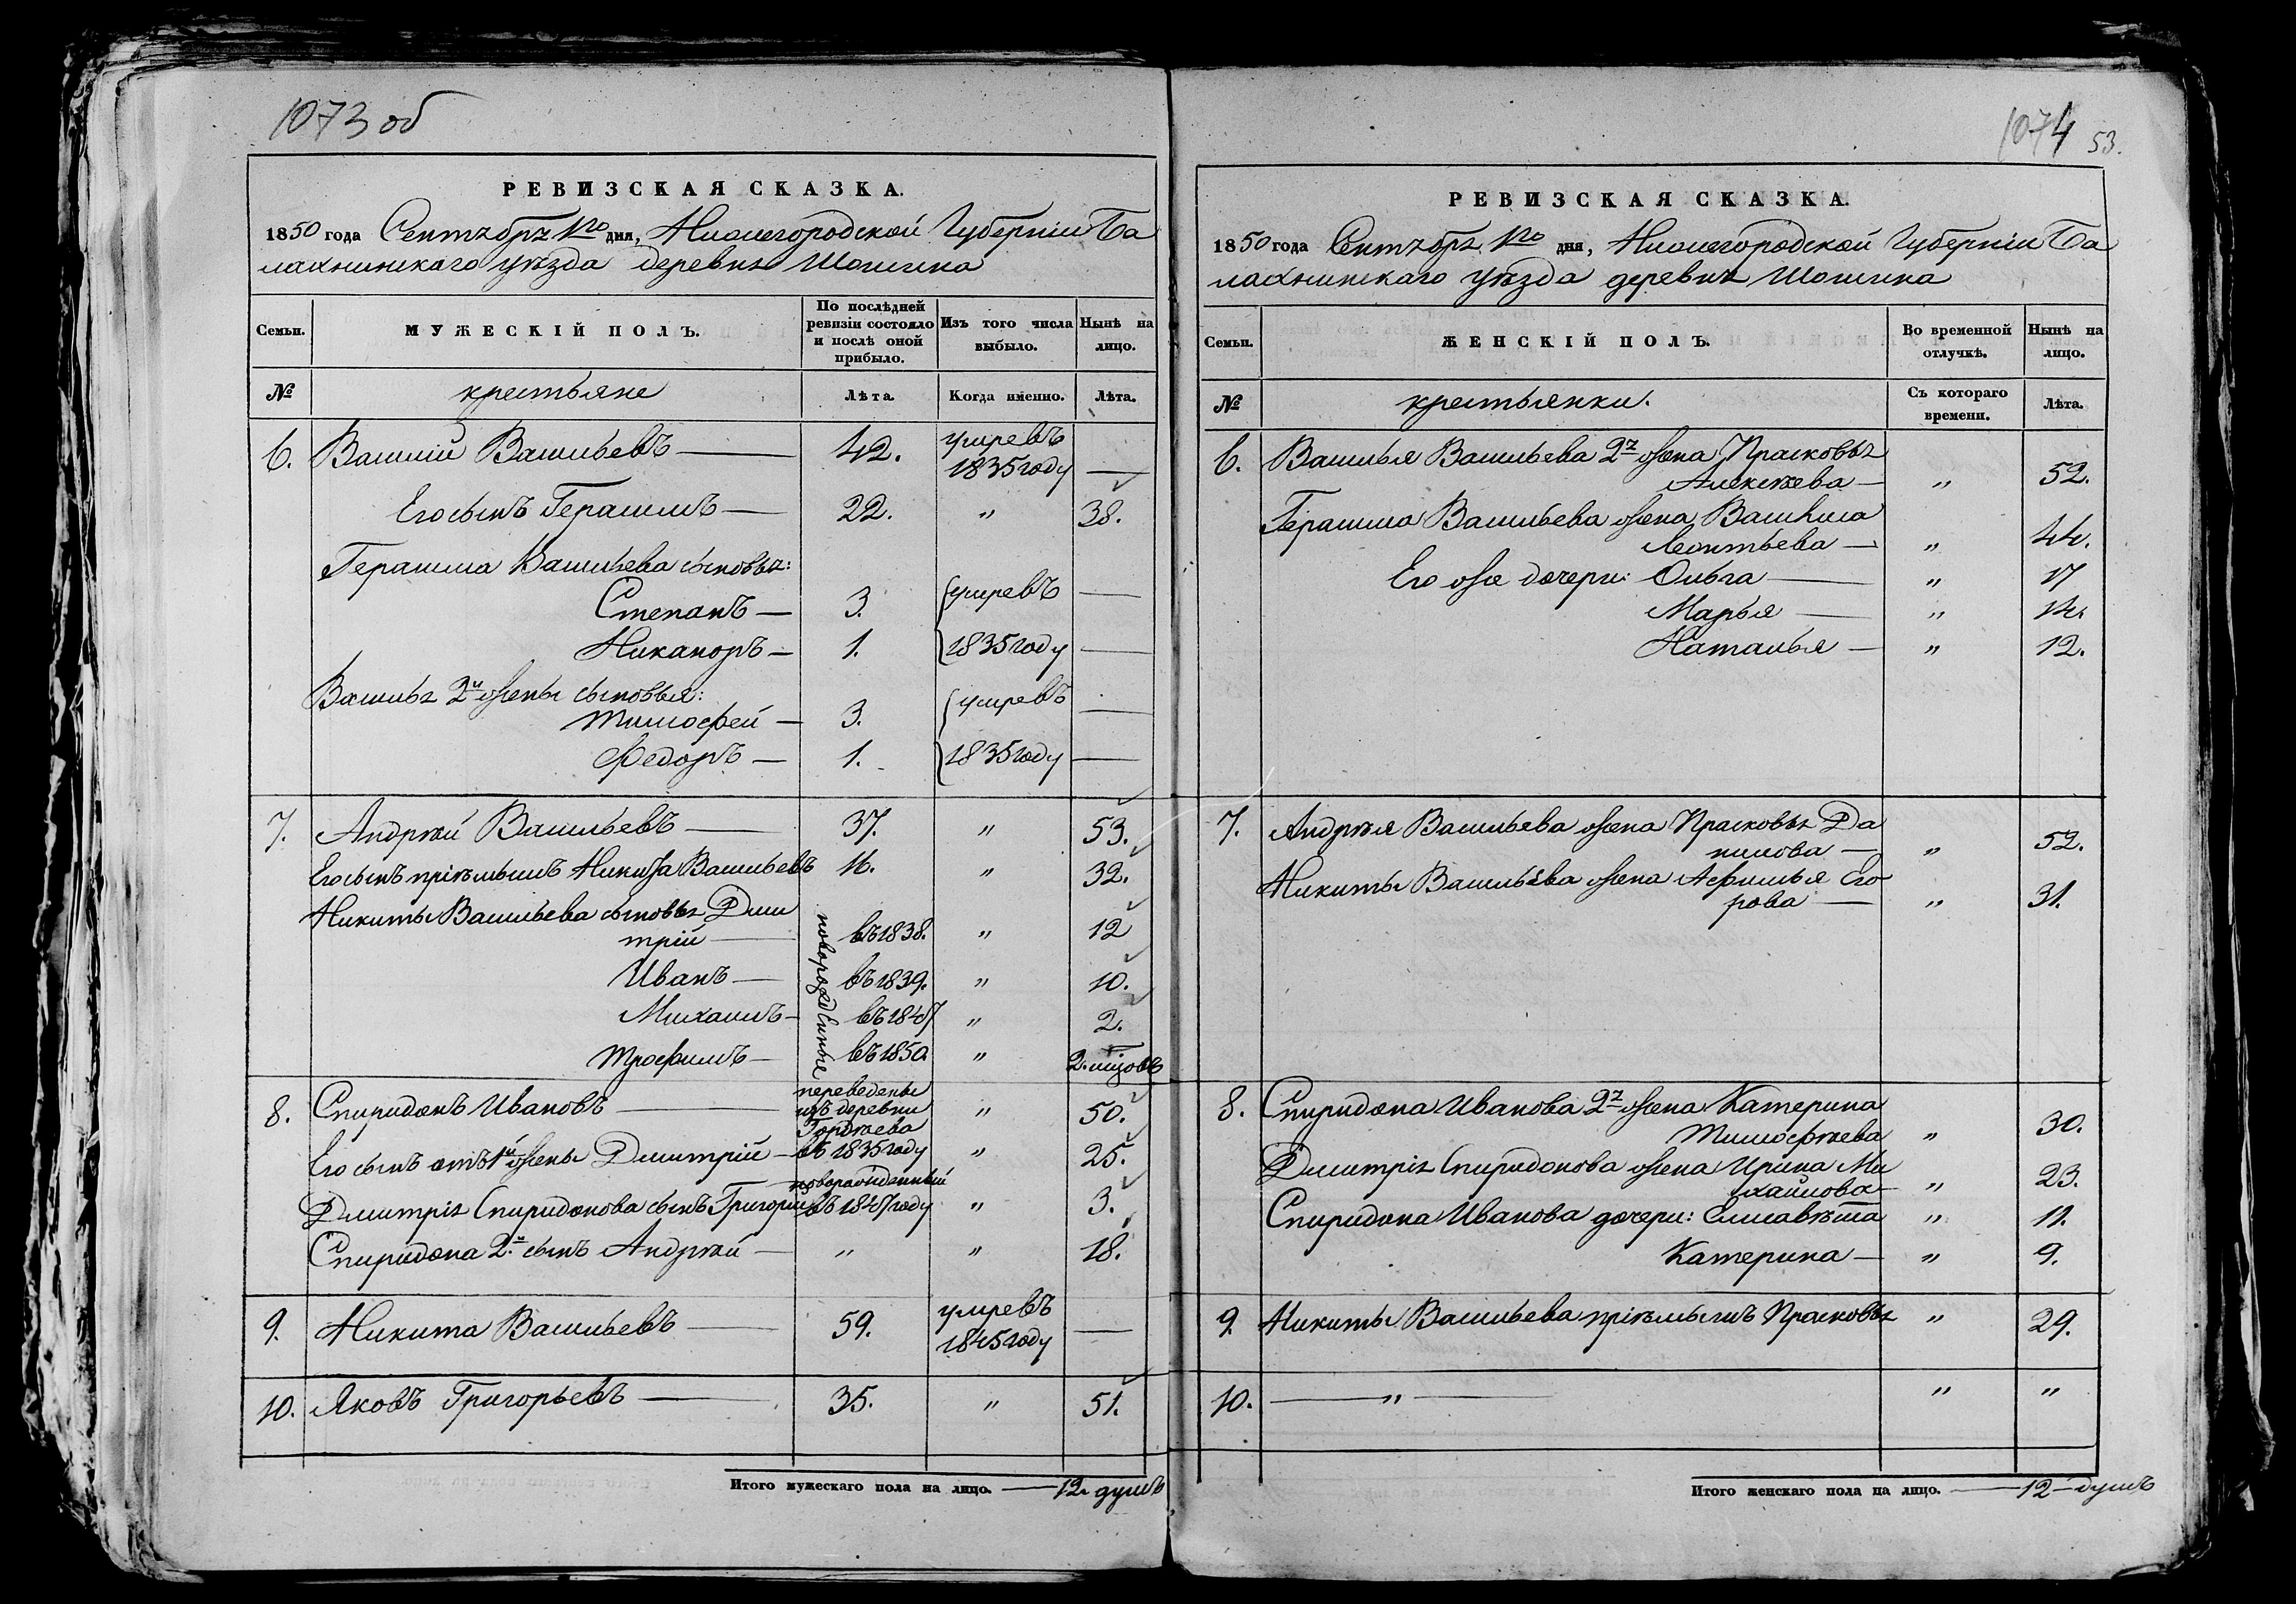 1073 об
РЕВИЗСКАЯ СКАЗКА.
1850 года Сентября 1го дня, Нижегородской Губерніи Ба
лахнинскаго уѣзда деревни Шошина
Семьи. МУЖЕСКІЙ ПОЛЪ. По послѣдней ревизіи состояло и послѣ оной прибыло. Изъ того числа выбыло. Нынѣ на лицо.
№ крестьяне Лѣта. Когда именно. Лѣта.
6. Василій Васильевъ — 42. умревъ 1835 году —
Его сынъ Герасимъ — 22. " 38.
Герасима Васильева сыновья:
Степанъ — 3. умревъ —
Никаноръ — 1. 1835 году —
Василья 2й жены сыновья:
Тимофей — 3. умревъ —
Федоръ — 1. 1835 году —
7. Андрѣй Васильевъ — 37. " 53.
Его сынъ пріемышъ Никита Васильевъ 16. " 32.
Никиты Васильева сыновья Дми
трій — новорожденные въ 1838. " 12
Иванъ — въ 1839. " 10.
Михаилъ — въ 1847 " 2.
Трофимъ — въ 1850 " 2. мцовъ
8. Спиридонъ Ивановъ — переведены изъ деревни Гордѣева " 50.
Его сынъ отъ 1й жены Дмитрій — въ 1835 году " 25.
Дмитрія Спиридонова сынъ Григорій новорожденный въ 1847 году " 3.
Спиридона 2й сынъ Андрѣй — " " 18.
9. Никита Васильевъ — 59. умревъ 1845 году —
10. Яковъ Григорьевъ — 35. " 51.
Итого мужескаго пола на лицо. — 12 душъ
1074 53.
РЕВИЗСКАЯ СКАЗКА.
1850 года Сентября 1го дня, Нижегородской Губерніи Ба
лахнинскаго уѣзда деревни Шошина
Семьи. ЖЕНСКІЙ ПОЛЪ. Во временной отлучкѣ. Нынѣ на лицо.
№ крестьянки. Съ котораго времени. Лѣта.
6. Василья Васильева 2я жена Прасковья
Алексѣева — " 52.
Герасима Васильева жена Васиħиса
Леонтьева — " 44.
Его же дочери: Ольга — " 17
Марья — " 14.
Наталья — " 12.
7. Андрѣя Васильева жена Прасковья Да
нилова — " 52.
Никиты Васильева жена Афимья Его
рова — " 31.
8. Спиридона Иванова 2я жена Катерина
Тимофѣева " 30.
Дмитрія Спиридонова жена Ирина Ми
хайлова — " 23.
Спиридона Иванова дочери: Елисавѣта " 11.
Катерина — " 9.
9. Никиты Васильева пріемышъ Прасковья " 29.
10. — " — " "
Итого женскаго пола на лицо. — 12 душъ